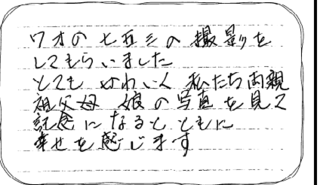 7才の七五三の撮影を
してもらいました
とても かわいく 私たち両親
祖父母 娘の写真を見て
記念になるとともに
幸せを感じます